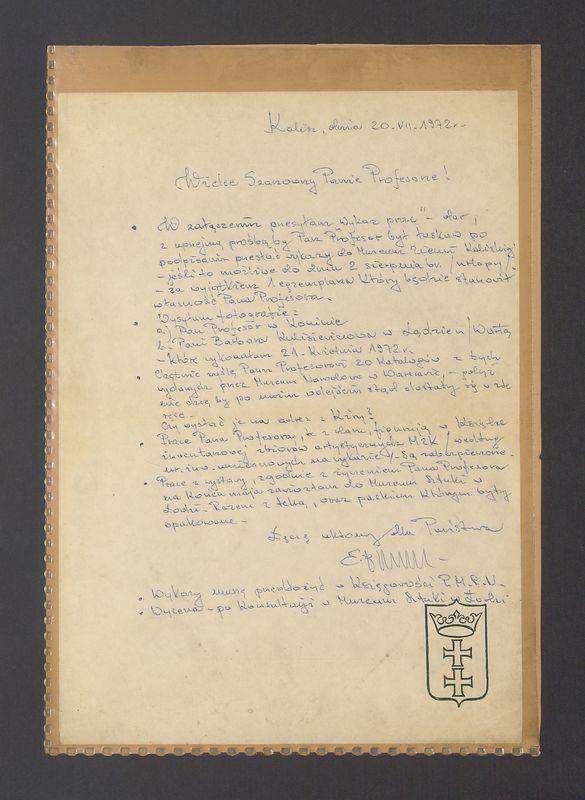 Kalisz, dnia 20.VII.1972r.
Wielce Szanowny Panie Profesorze!
• W załączeniu przesyłam "wykaz prac" – dar,
z uprzejmą prośbą by Pan Profesor był łaskaw po
podpisaniu przesłać wykazy do Muzeum Ziemi Kaliskiej
– jeśli to możliwe do dnia 2 sierpnia br. /urlopy/.
– za wyjątkiem 1 egzemplarza który będzie stanowił
własność Pana Profesora.
• Wysyłam fotografie:
a) Pan Profesor w Koninie
b. Pani Barbara Kulisiewiczowa w Lądzie n/Wartą
– które wykonałam 21. kwietnia 1972r.
• Chętnie wyślę Panu Profesorowi 20 katalogów z tych
wydanych przez Muzeum Narodowe w Warszawie, –
nie chcę by po moim odejściu stąd dostały się w
ręce –
Czy wysłać je na adres z Kiry?
• Prace Pana Profesora, te z daru, figurują w Księdze
inwentarzowej zbiorów artystycznych MZK /według
nr. inw. umieszczonych na wykazie/. Są zabezpieczone.
• Prace z wystawy, zgodnie z życzeniem Pana Profesora
na końcu maja zawiozłam do Muzeum Sztuki w
Łodzi. Razem z teką, oraz paskiem którym były
opakowane –
Łączę ukłony dla Państwa
• Wykazy muszę przedłożyć w Księgowości P.M.R.N.
• Wycena – po konsultacji w Muzeum Sztuki w Łodzi